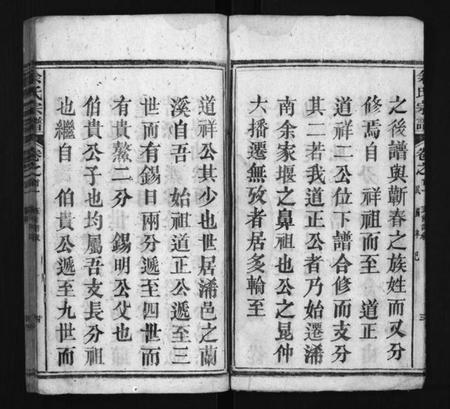 之後譜與蘄春之族姓而又分
修焉自　祥祖而至　道正
道祥二公位下譜合修而支分
其二若我道正公者乃始遷浠
南余家堰之鼻祖也公之昆仲
大播遷無攷者居多輪至
道祥公其少也世居浠邑之蘭
溪自吾　始祖道正公遞至三
世而有錫日兩分遞至四世而
有貴鰲二分　錫明公父也
伯貴公子也均屬吾支長分祖
也繼自　伯貴公遞至九世而
余氏宗譜
卷之